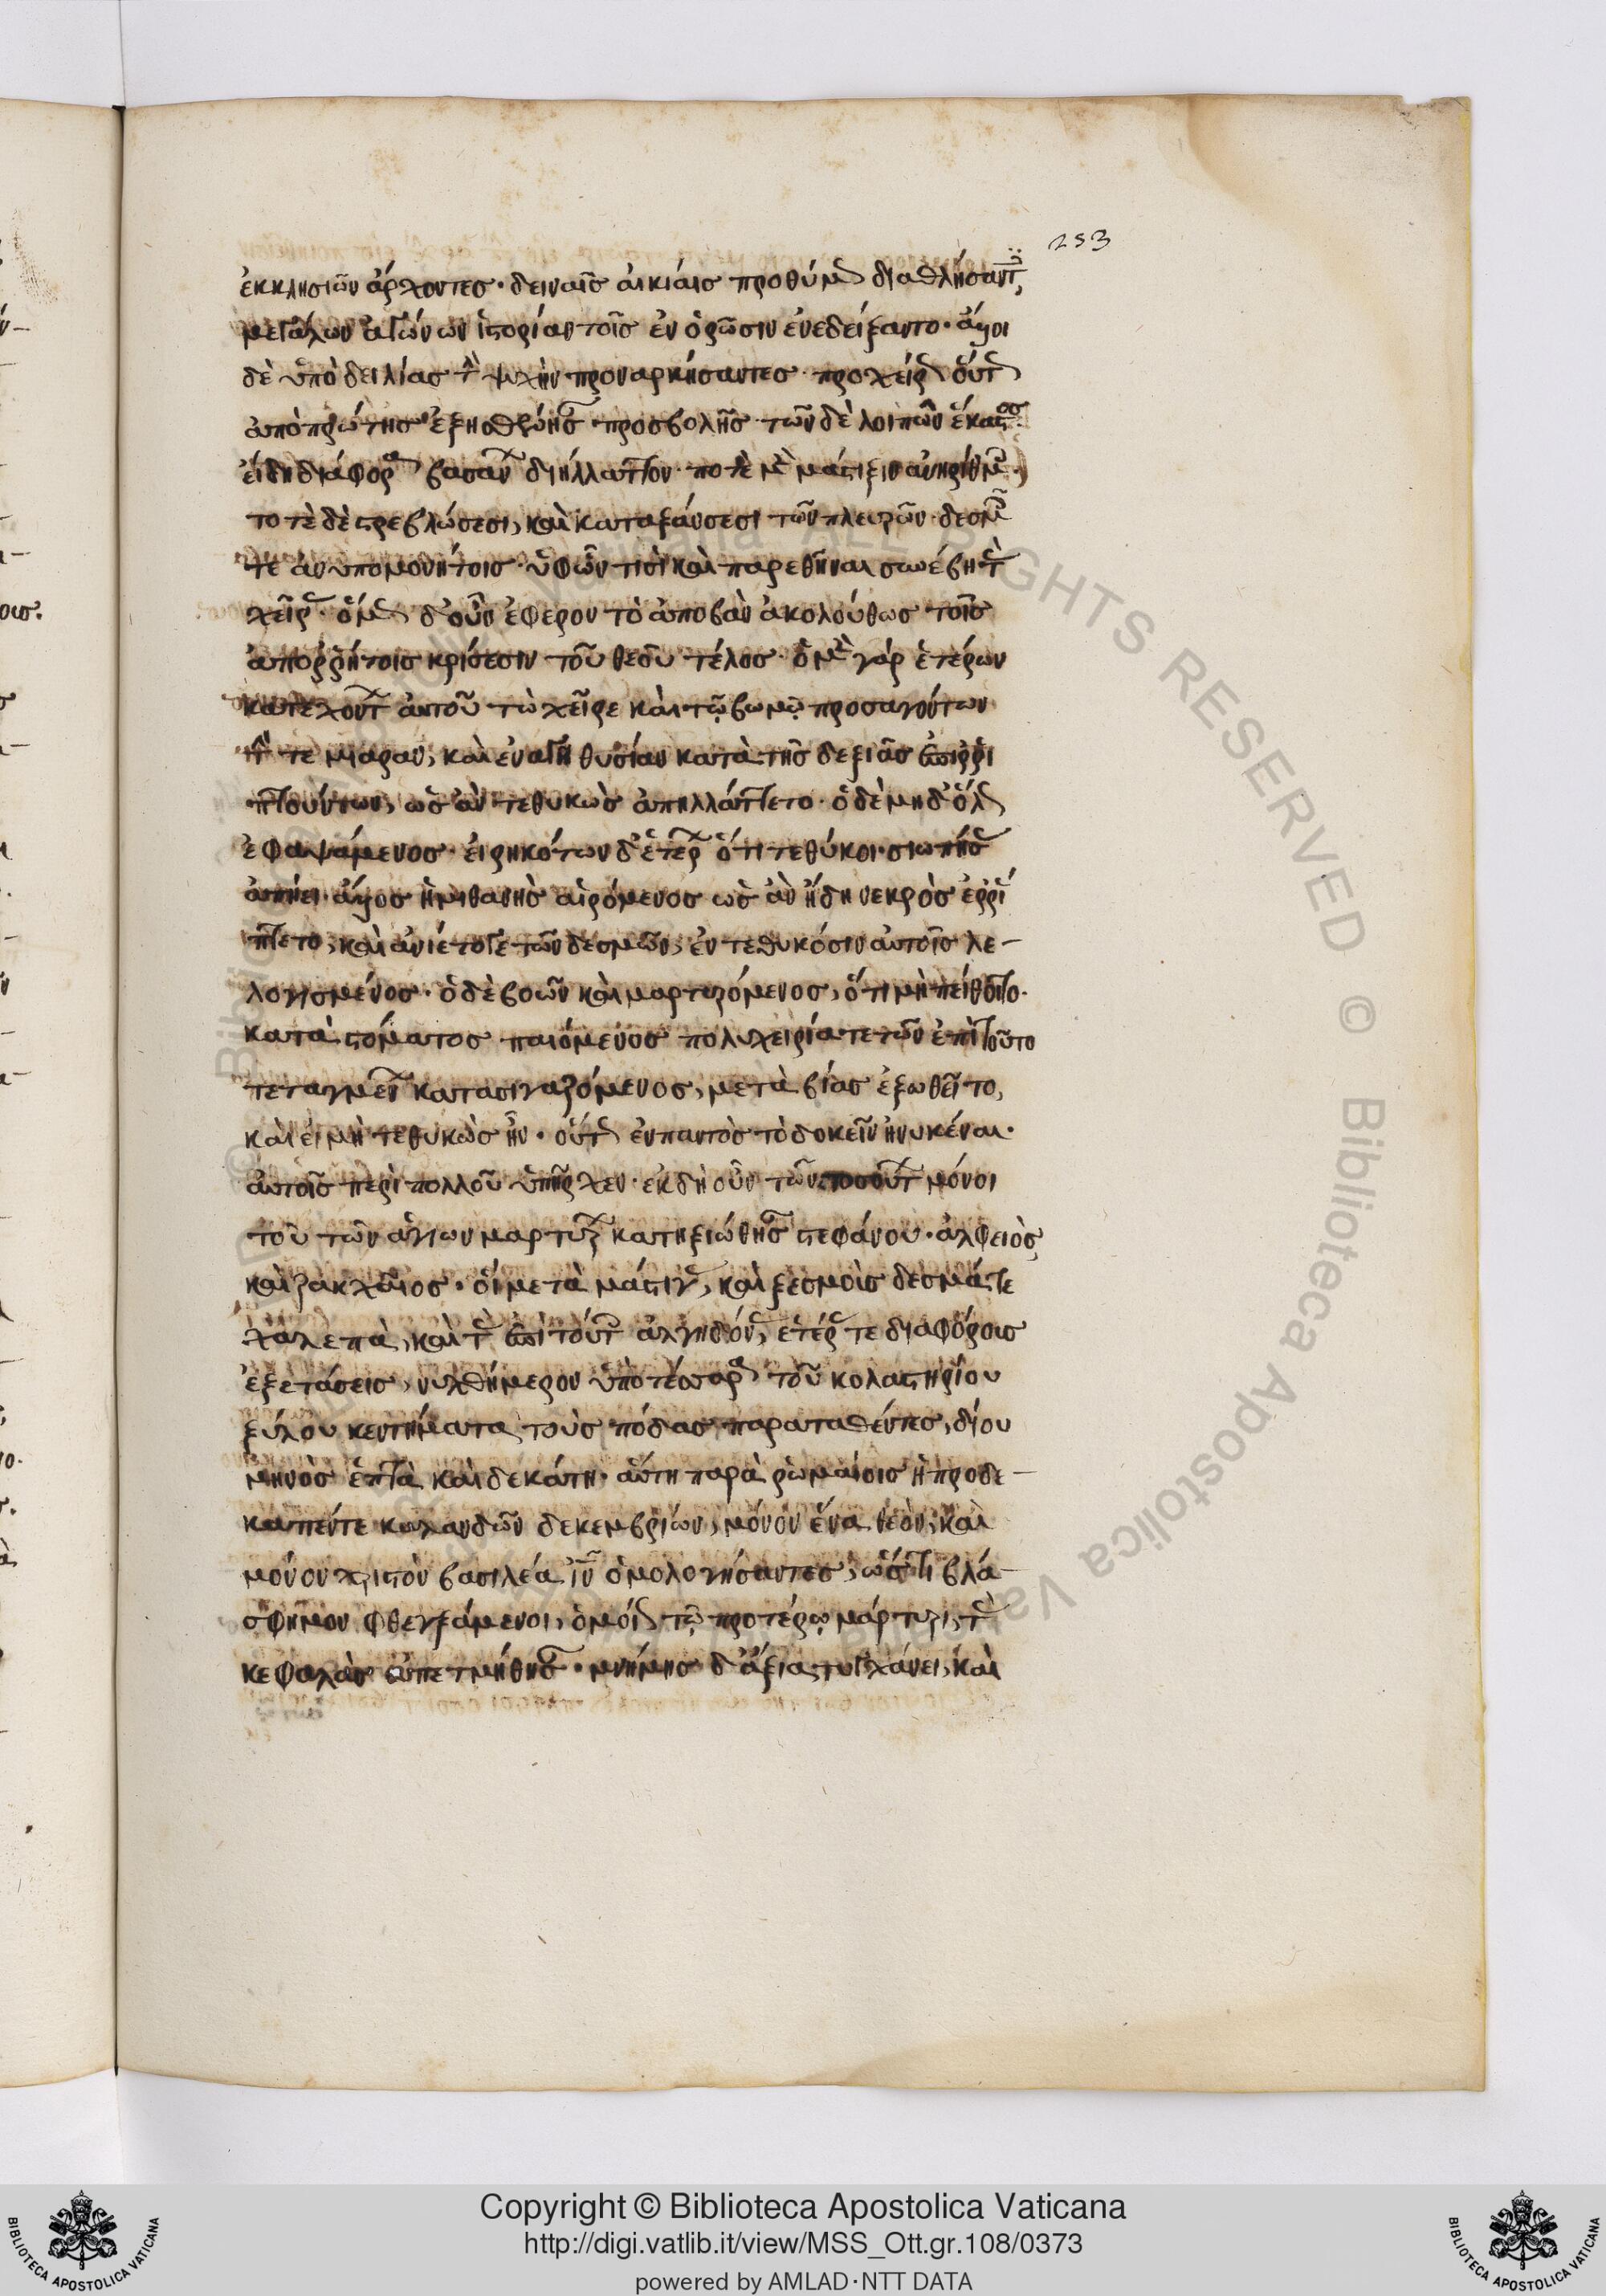 253
ἐκκλησιῶν ἄρχοντες· δειναῖς αἰκίαις προθύμως διαθλήσαντες,
μεγάλων ἀγώνων ἱστορίαν τοῖς ἐν ὁρῶσιν ἐνεδείξαντο· ἄλλοι
δὲ ὑπὸ δειλίας τὴν ψυχὴν προναρκήσαντες· προχείρως οὕτως
ἀπὸ πρώτης ἐξησθένησαν προσβολῆς· τῶν δὲ λοιπῶν ἕκαστος
εἴδη διάφορα βασάνων διήλλαττον· ποτὲ μὲν μάστιξιν ἀνηρίθμοις·
τοτὲ δὲ στρεβλώσεσι, καὶ καταξάνσεσι τῶν πλευρῶν· δεσμοῖς
τε ἀνυπομονήτοις· ὑφ' ὧν τισὶ καὶ παρεθῆναι συνέβη τὰς
χεῖρας· ὅμως δ' οὖν ἔφερον τὸ ἀποβὰν ἀκολούθως τοῖς
ἀπορρήτοις κρίσεσιν τοῦ θεοῦ τέλος· ὁ μὲν γὰρ ἑτέρων
κατεχόντων αὐτοῦ τὼ χεῖρε καὶ τῷ βωμῷ προσαγόντων
τῇ τε μιαρὰν, καὶ ἐναγῆ θυσίαν κατὰ τῆς δεξιᾶς ἐπιρρι
πτούντων, ὡς ἂν τεθυκὼς ἀπηλλάττετο· ὁ δὲ μηδ' ὅλως
ἐφαψάμενος· εἰρηκότων δ' ἑτέρων ὅτι τεθύκοι· σιωπῆς
ἀπῄει· ἄλλος ἡμιθανὴς αἰρόμενος ὡς ἂν ἤδη νεκρὸς ἐρρί
πτετο, καὶ ἀνίετό γε τῶν δεσμῶν, ἐν τεθυκόσιν αὐτοῖς λε-
λογισμένος· ὁ δὲ βοῶν καὶ μαρτυρόμενος, ὅτι μὴ πείθοιτο·
κατὰ στόματος παιόμενος πολυχειρία τε τῶν ἐπὶ τοῦτο
τεταγμένων κατασιγαζόμενος, μετὰ βίας ἐξωθεῖτο,
καὶ εἰ μὴ τεθυκὼς ἦν· οὕτως ἐν παντὸς τὸ δοκεῖν ἠνυκέναι·
αὐτοῖς περὶ πολλοῦ ὑπῆρχεν· ἐκ δὴ οὖν τῶν τοσούτων μόνοι
τοῦ τῶν ἁγίων μαρτύρων κατηξιώθησαν στεφάνου· ἀλφειὸς
καὶ ζακχαῖος· οἳ μετὰ μάστιγας, καὶ ξεσμοὶς δεσμά τε
χαλεπὰ, καὶ τὰς ἐπὶ τούτοις ἀλγηδόνας, ἑτέρας τε διαφόροις
ἐξετάσεις, νυχθήμερον ὑπὸ τέσσαρα τοῦ κολαστηρίου
ξύλου κεντήματα τοὺς πόδας παραταθέντες, δίου
μηνὸς ἑπτὰ καὶ δεκάτη· αὕτη παρὰ ῥωμαίοις ἡ προδε-
καπέντε καλανδῶν δεκεμβρίων, μόνον ἕνα θεὸν, καὶ
μόνον χριστὸν βασιλέα ἰν ὁμολογήσαντες, ὥς τι βλά-
σφημον φθεγξάμενοι, ὁμοίως τῷ προτέρῳ μάρτυρι, τὰς
κεφαλὰς ἀπετμήθησαν· μνήμης δ' ἄξια τυγχάνει, καὶ